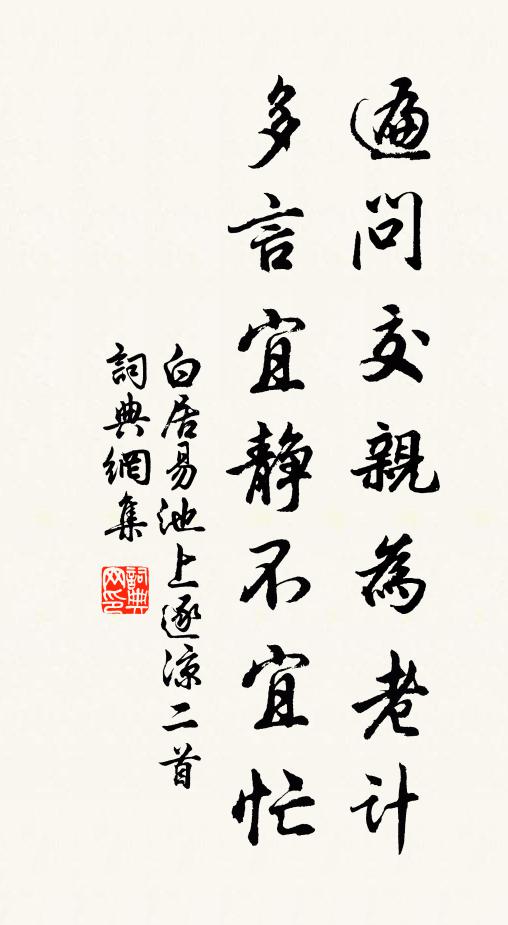 遍問交親為老計
多言宜靜不宜忙
白居易池上逐涼二首
詞典網集
詞典網印